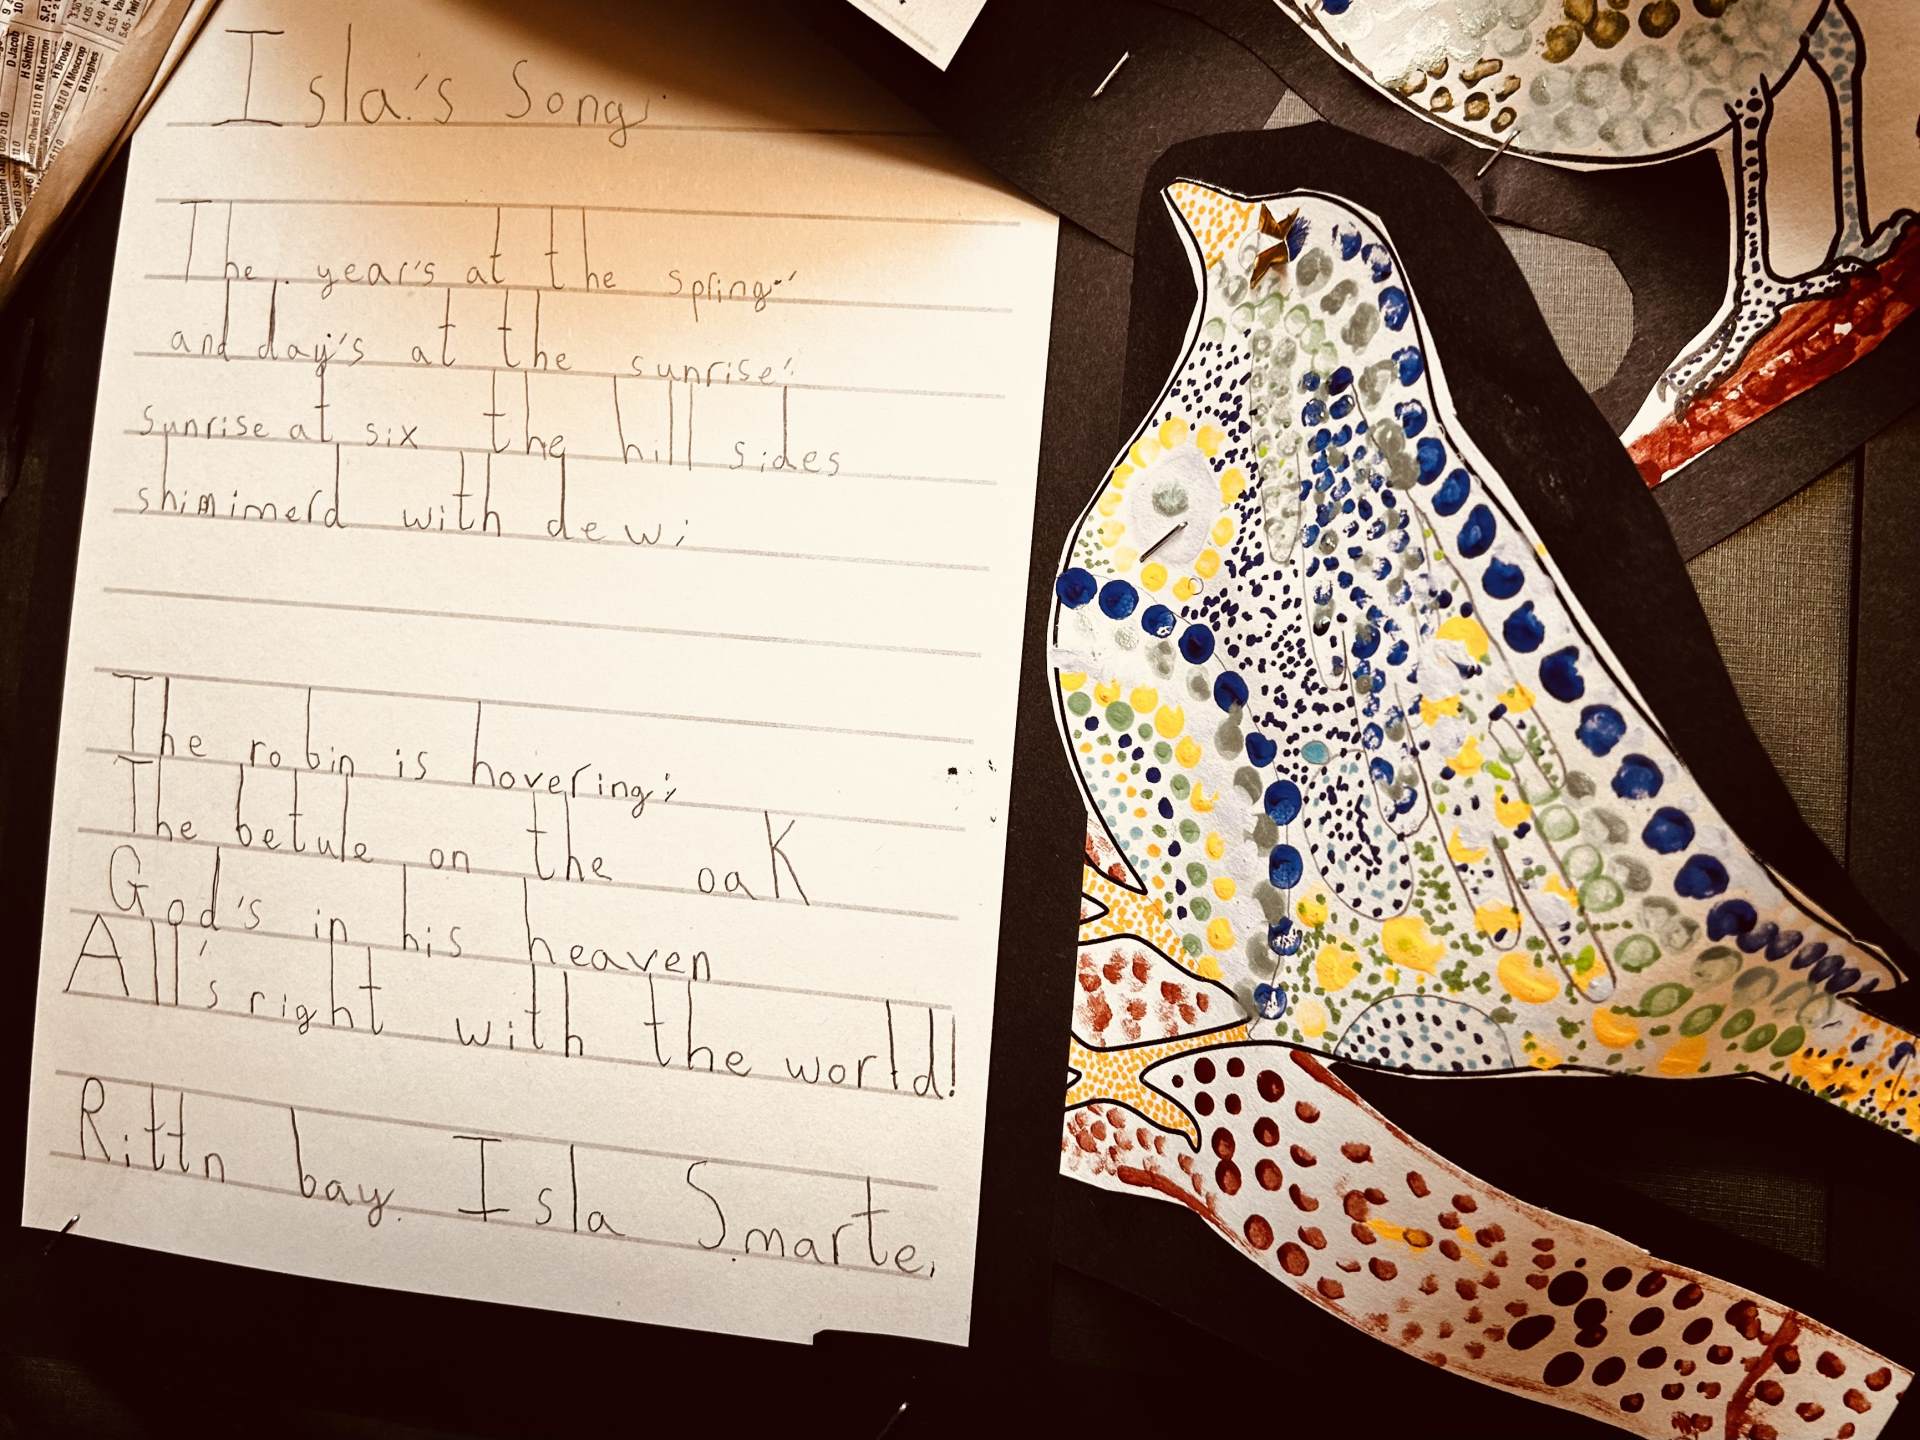 Isla's Song.
The year's at the spring;
and day's at the sunrise;
sunrise at six the hill sides
shimimerd with dew;
The robin is hovering;
The betule on the oaK
God's in his heaven
All's right with the world!
Rittn bay. Isla Smarte.
D Jacob
H Skelton
R McLernon
H Brooke
N Moscrop
B Hughes